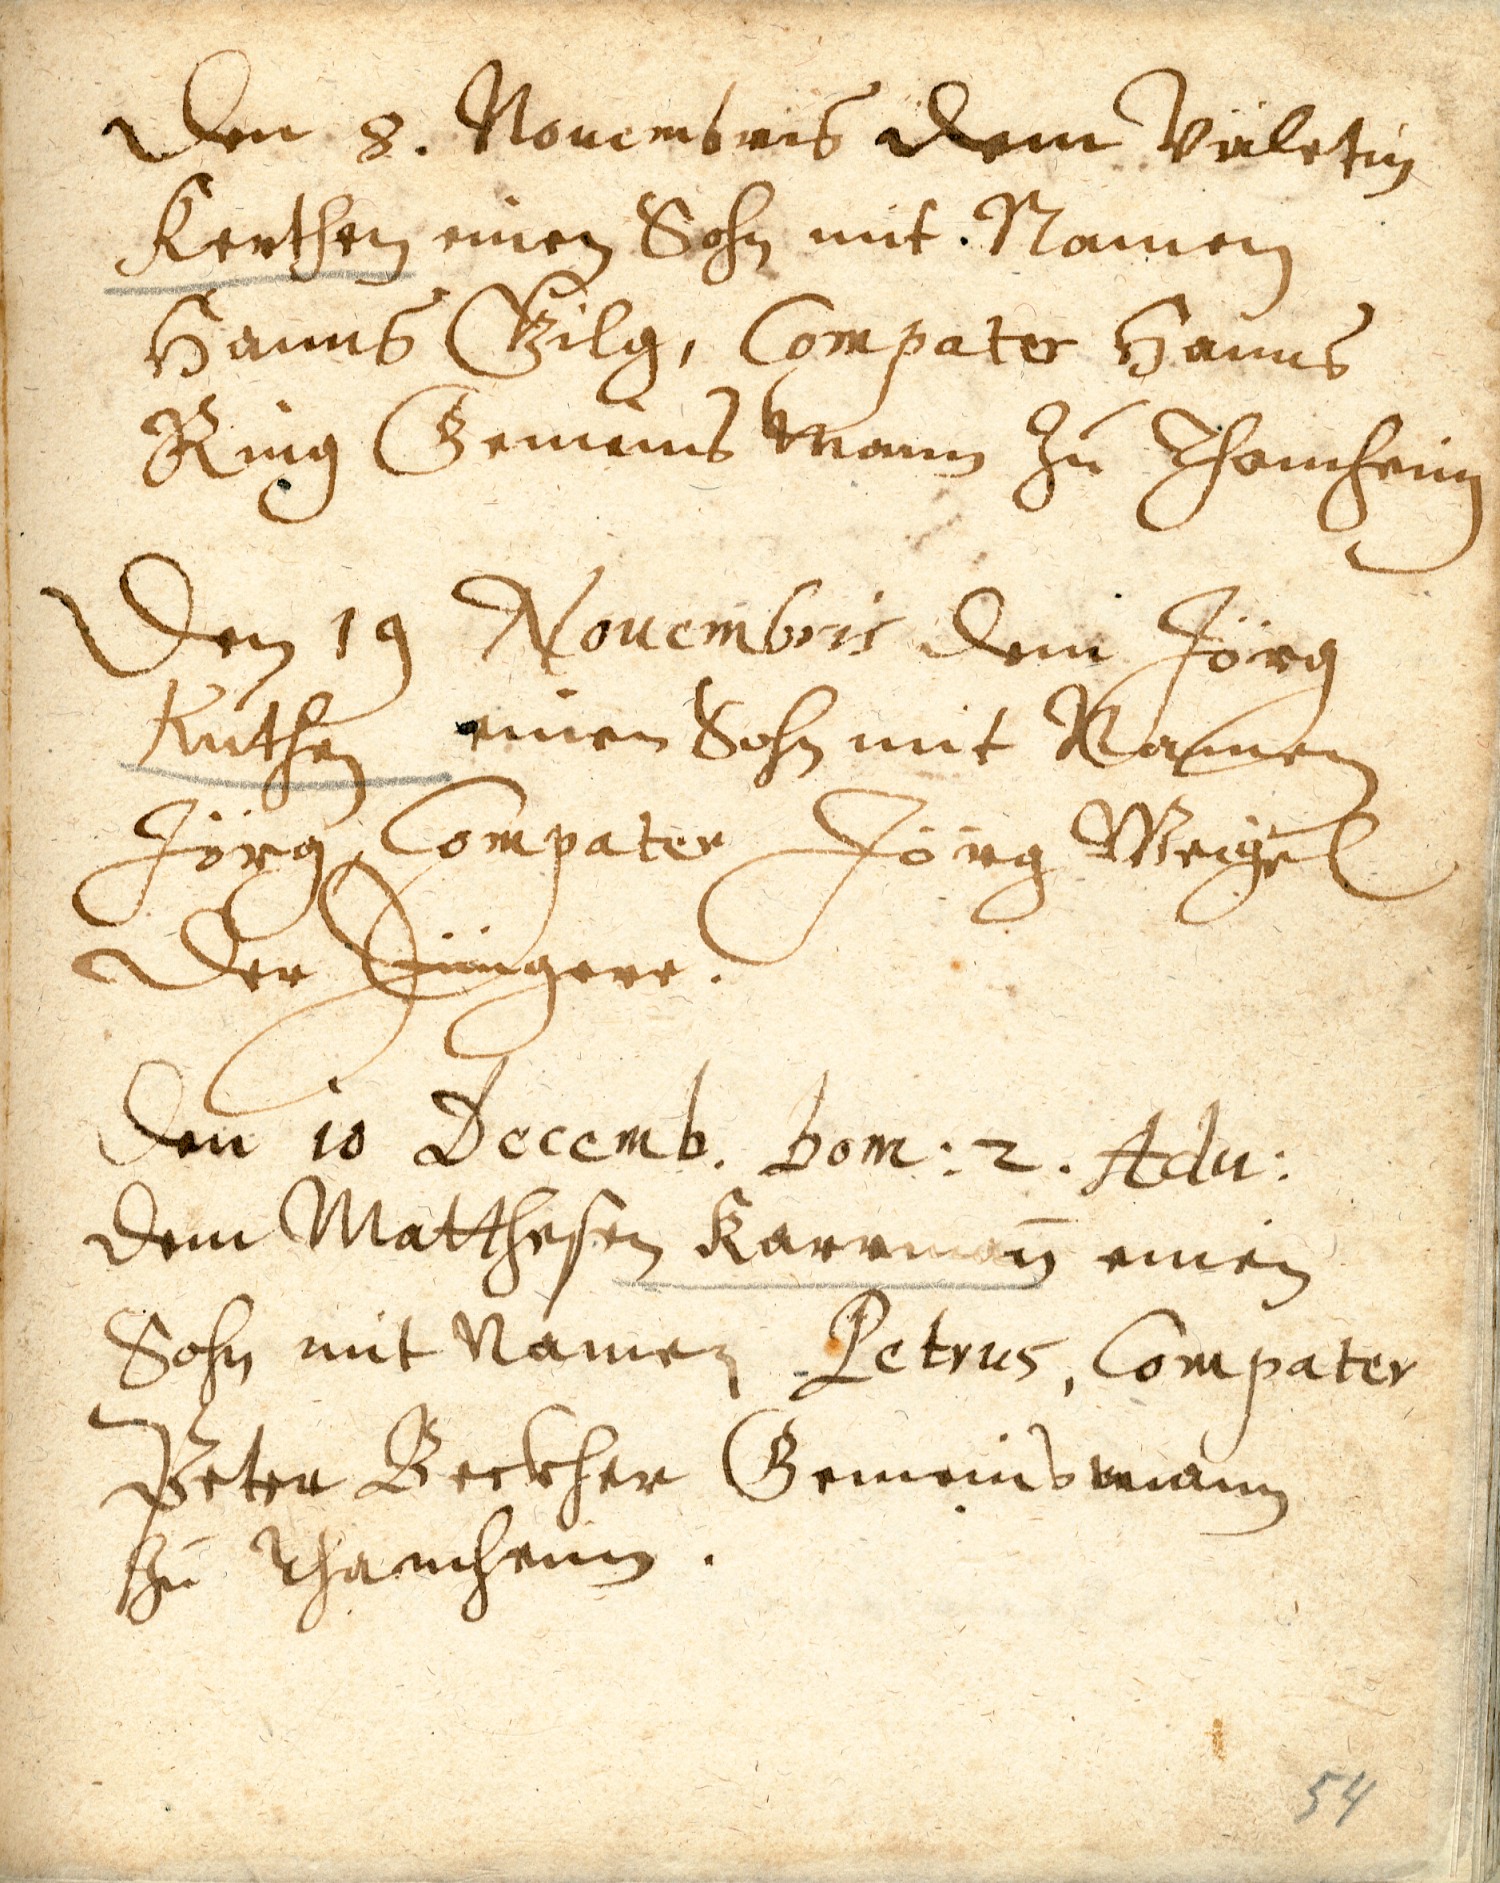 Den 8. Nouembris dem Välētin
Kerthen einen Sohn mit Namen
Hanns Gilg, Compater Hanns
Ring Gemeinsmann zu Thamheim
Den 19 Nouembris dem Jörg
Kuthen einen Sohn mit Namen
Jörg, Compater Jörg Weigel
der Jüngere.
Den 10 Decemb. Dom: 2. Adu:
dem Matthesen Karrman̄ einen
Sohn mit Namen Petrus, Compater
Peter Beckher Gemeinsmann
zu Thamheim.
54